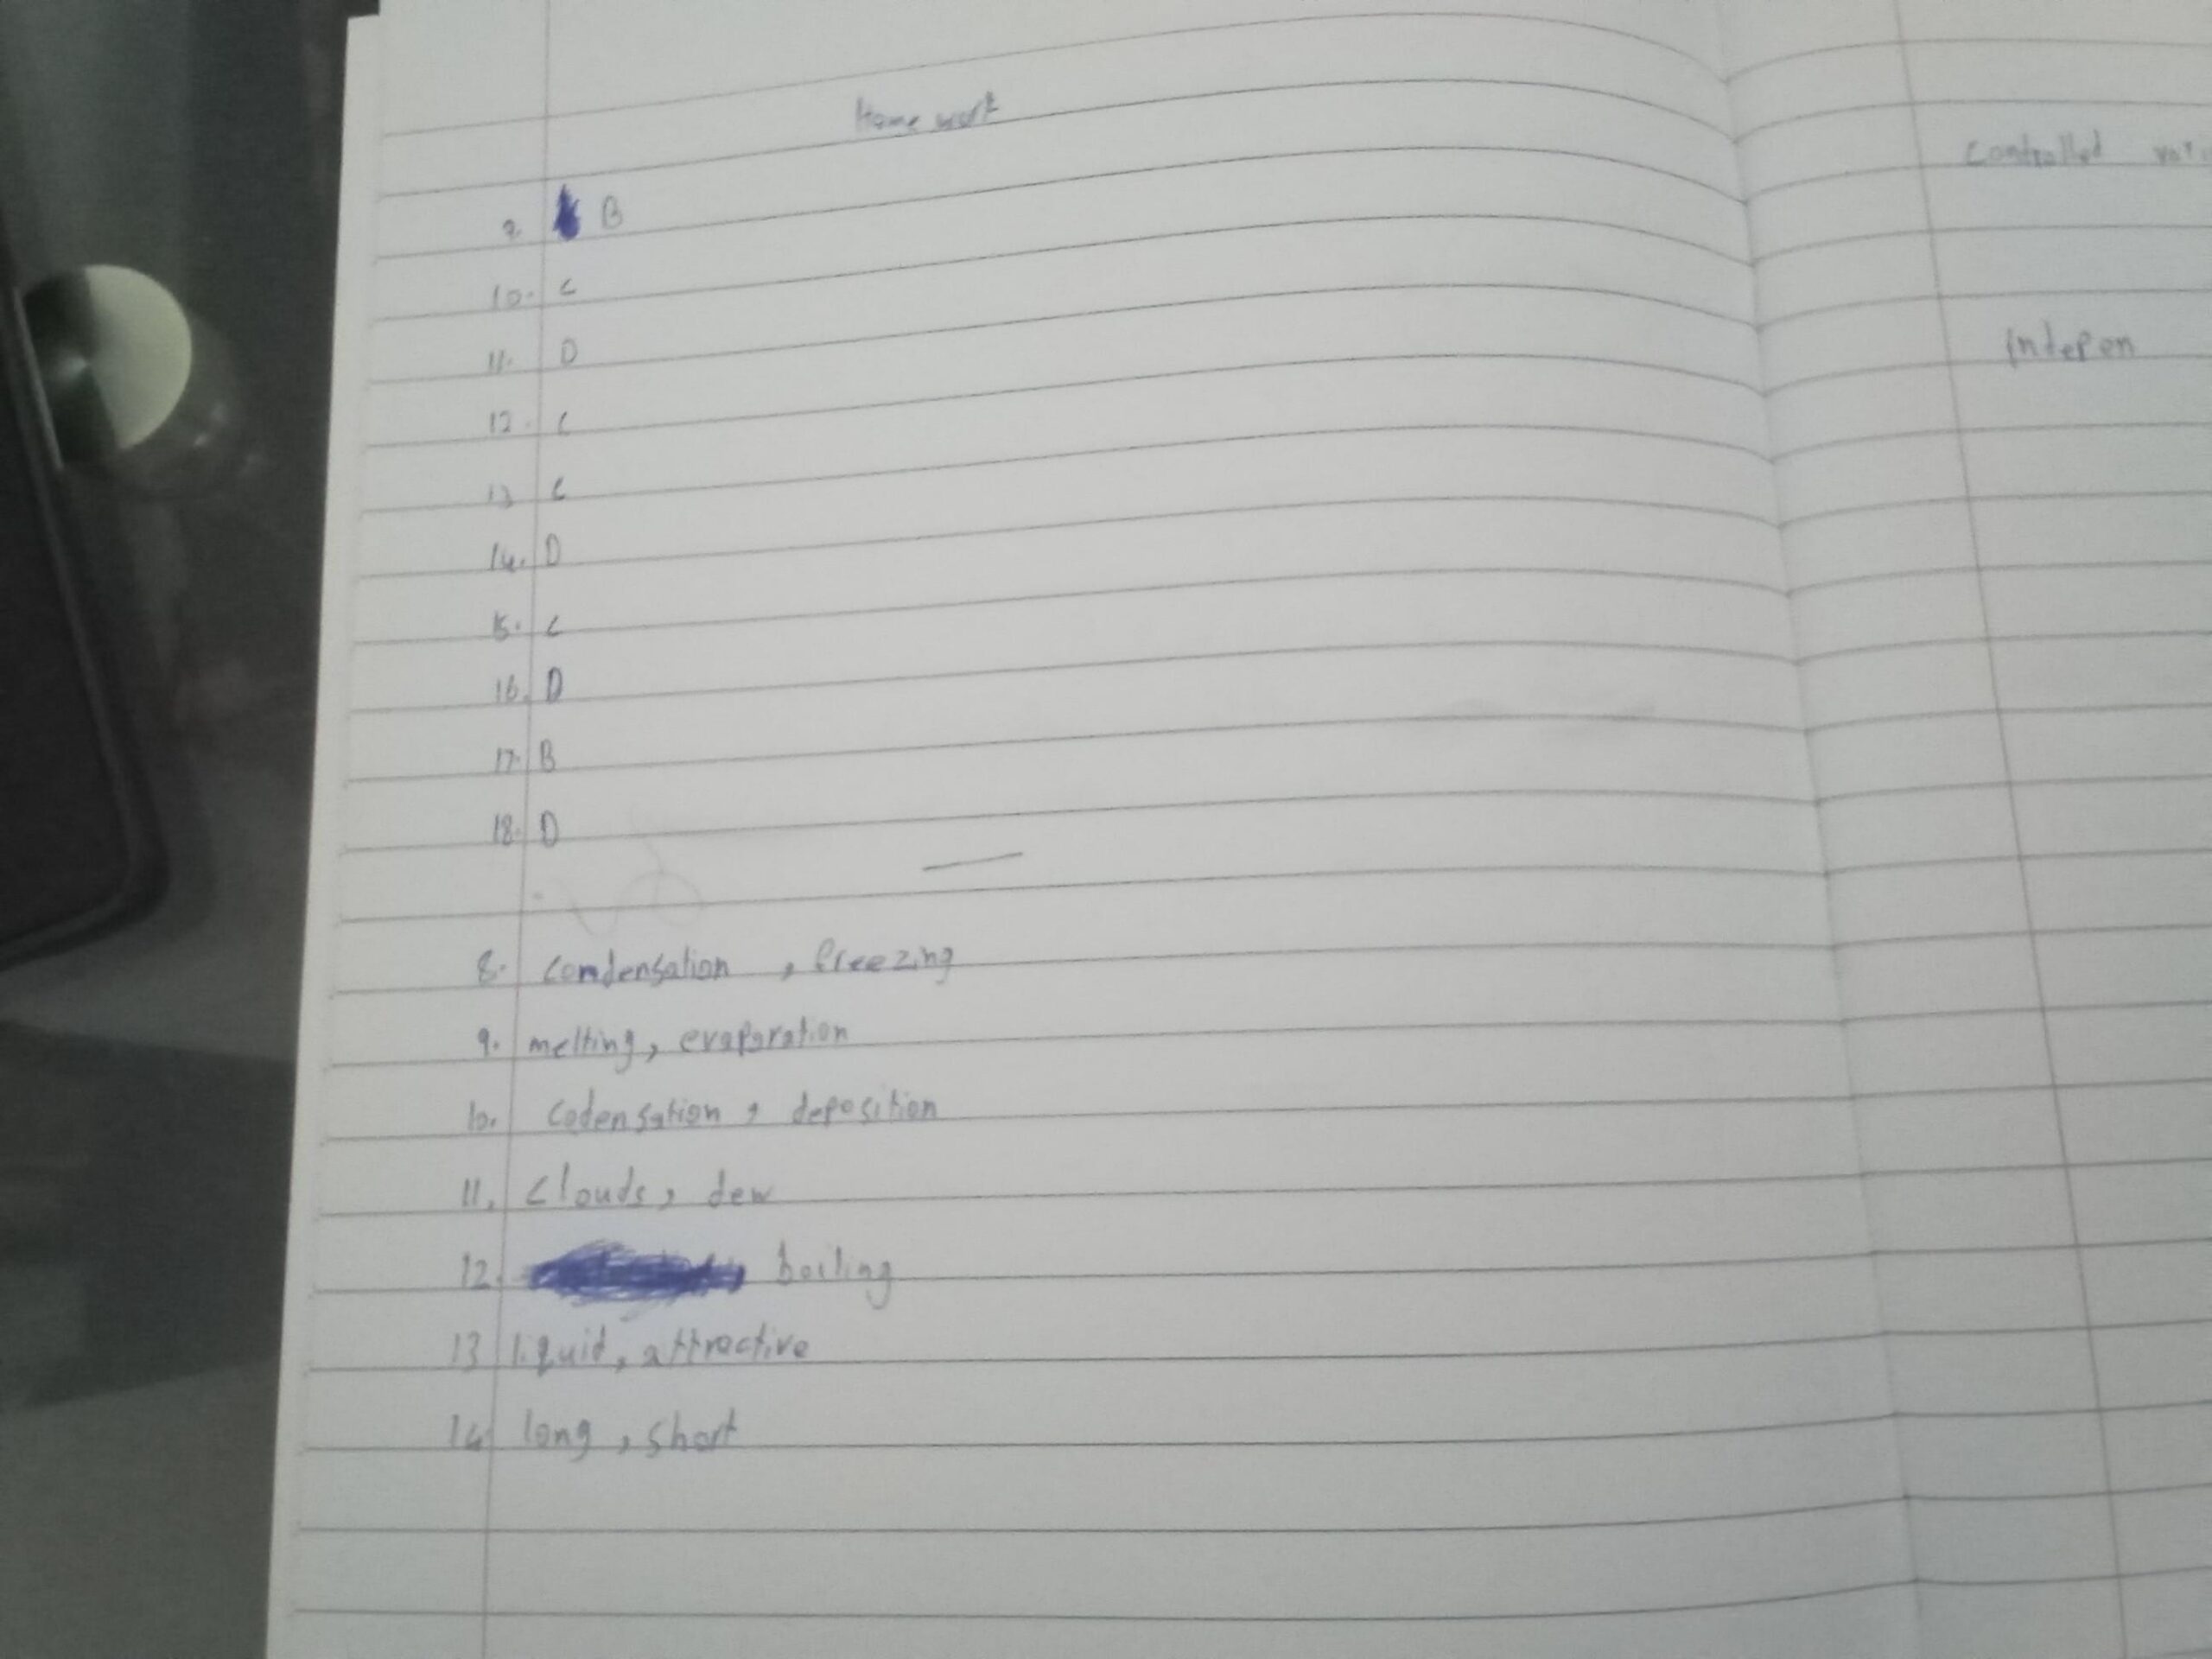 Home work
9. B
10. C
11. D
12. C
13 C
14. D
15. C
16. D
17. B
18. D
8. comdensation , freezing
9. melting, evaporation
10. codensation , deposition
11. Clouds, dew
12. boiling
13 liquid, attractive
14 long, short
Controlled
indepen